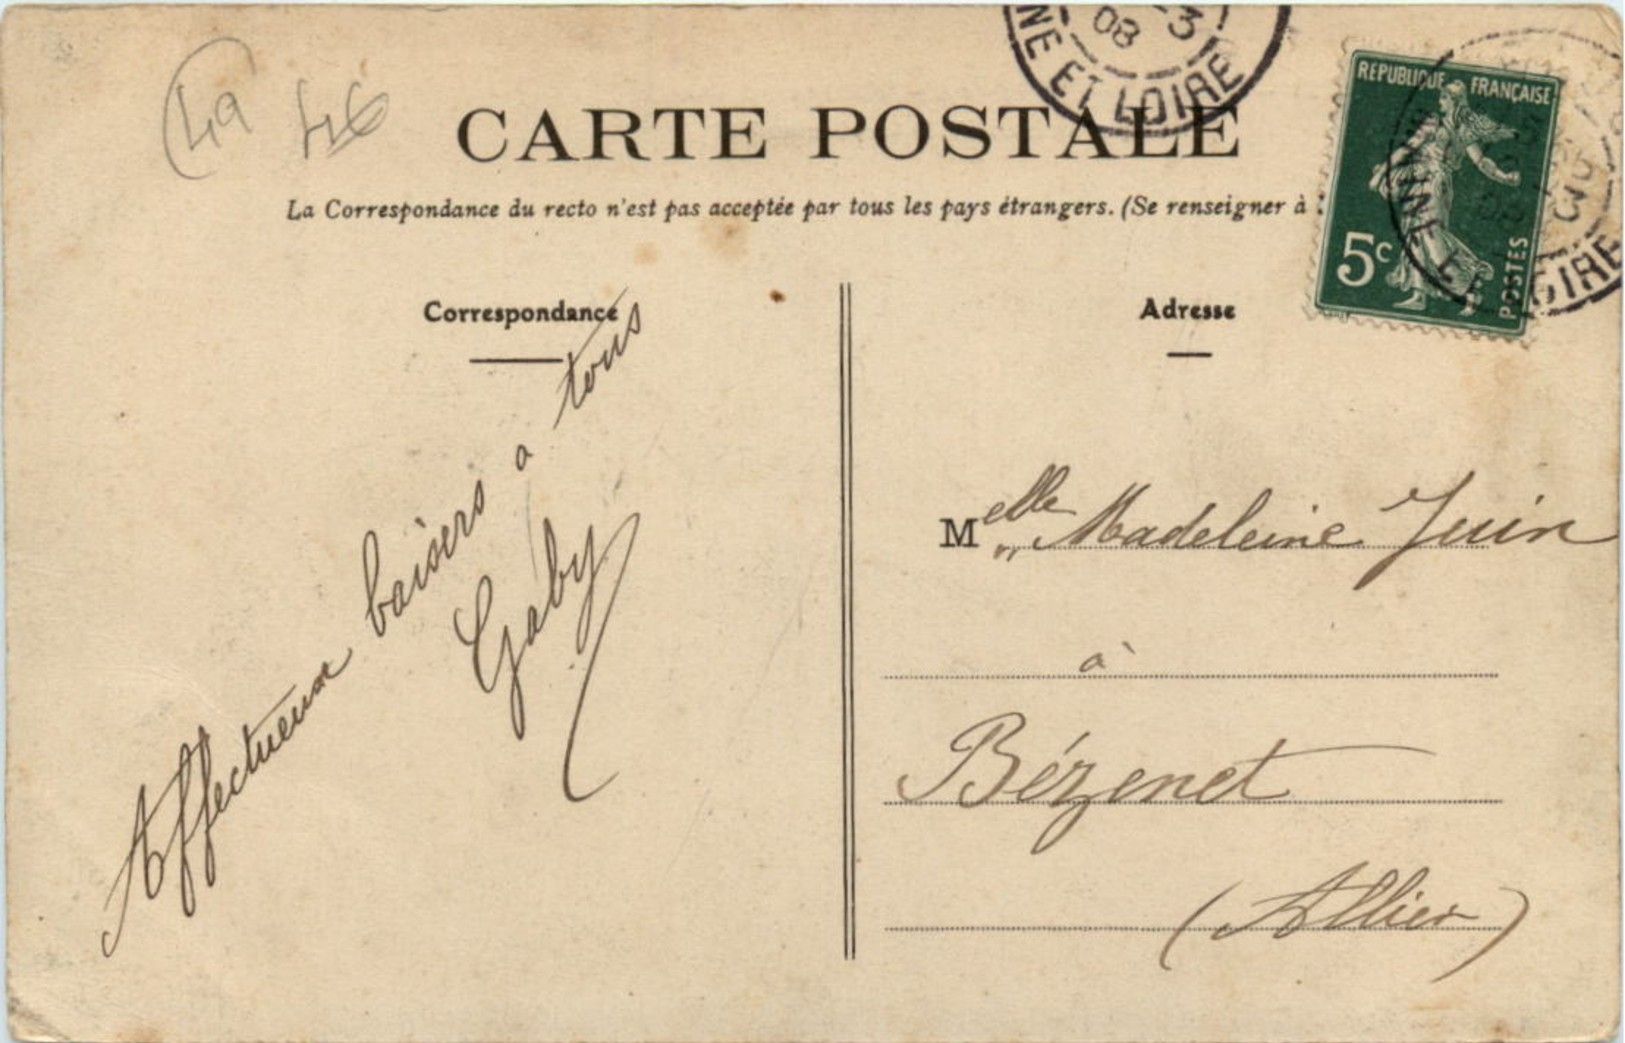 49
46
-3
08
NE ET LOIRE
CARTE POSTALE
La Correspondance du recto n'est pas acceptée par tous les pays étrangers. (Se renseigner à
RÉPUBLIQUE FRANÇAISE
5c
POSTES
Correspondance
Affectueux baisers a tous
Gaby
Adresse
Melle Madeleine Juin
à
Bézenet
(Allier)